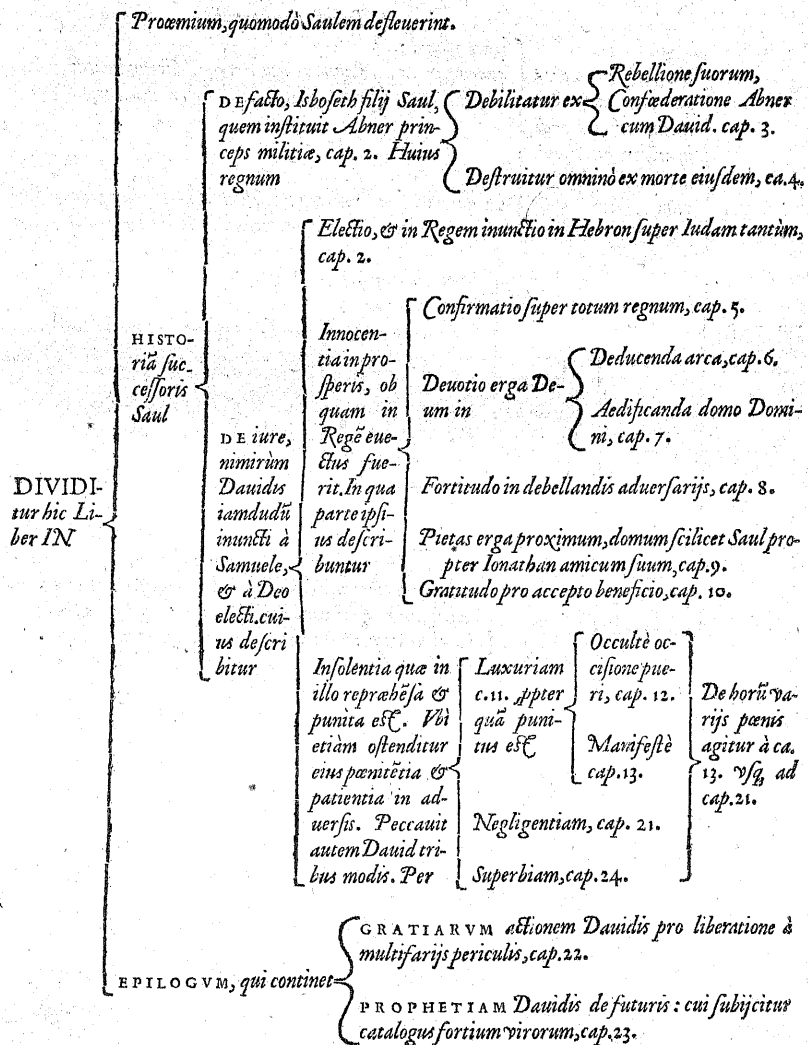 Proœmium, quomodò Saulem defleuerint.
DE facto, Isboseth filij Saul,
quem instituit Abner prin-
ceps militiæ, cap. 2. Huius
regnum
Debilitatur ex
Rebellione suorum,
Confœderatione Abner
cum Dauid. cap. 3.
Destruitur omninò ex morte eiusdem, ca.4.
Electio, & in Regem inunctio in Hebron super Iudam tantùm,
cap. 2.
HISTO-
riã suc-
cessoris
Saul
DE iure,
nimirùm
Dauidis
iamdudũ
inuncti à
Samuele,
& à Deo
electi. cui-
us descri
bitur
Innocen-
tia in pro-
speris, ob
quam in
Regẽ eue-
ctus fue-
rit. In qua
parte ipsi-
us descri-
buntur
Confirmatio super totum regnum, cap. 5.
Deuotio erga De-
um in
Deducenda arca, cap. 6.
Aedificanda domo Domi-
ni, cap. 7.
Fortitudo in debellandis aduersarijs, cap. 8.
Pietas erga proximum, domum scilicet Saul pro-
pter Ionathan amicum suum, cap. 9.
Gratitudo pro accepto beneficio, cap. 10.
DIVIDI-
tur hic Li-
ber IN
Insolentia quæ in
illo repræhẽsa &
punita est. Vbi
etiàm ostenditur
eius pœnitẽtia &
patientia in ad-
uersis. Peccauit
autem Dauid tri-
bus modis. Per
Luxuriam
c. 11. ꝓpter
quã puni-
tus est
Occultè oc-
cisione pue-
ri, cap. 12.
Manifestè
cap. 13.
Negligentiam, cap. 21.
Superbiam, cap. 24.
De horũ va-
rijs pœnis
agitur à ca.
13. vsq; ad
cap. 21.
EPILOGVM, qui continet
GRATIARVM actionem Dauidis pro liberatione à
multifarijs periculis, cap. 22.
PROPHETIAM Dauidis de futuris: cui subijcitur
catalogus fortium virorum, cap. 23.